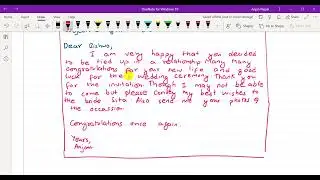 OneNote for Windows 10
Dear Bishwo,
I am very happy that you decided
to be tied up in a relationship. Many many
congratulations for your new life and good
luck for the wedding ceremony. Thank you
for the invitation. Though I may not be able
to come but please convey my best wishes to
the bride Sita. Also send me your photos of
the occassion.
Congratulations once again.
Yours,
Anjan